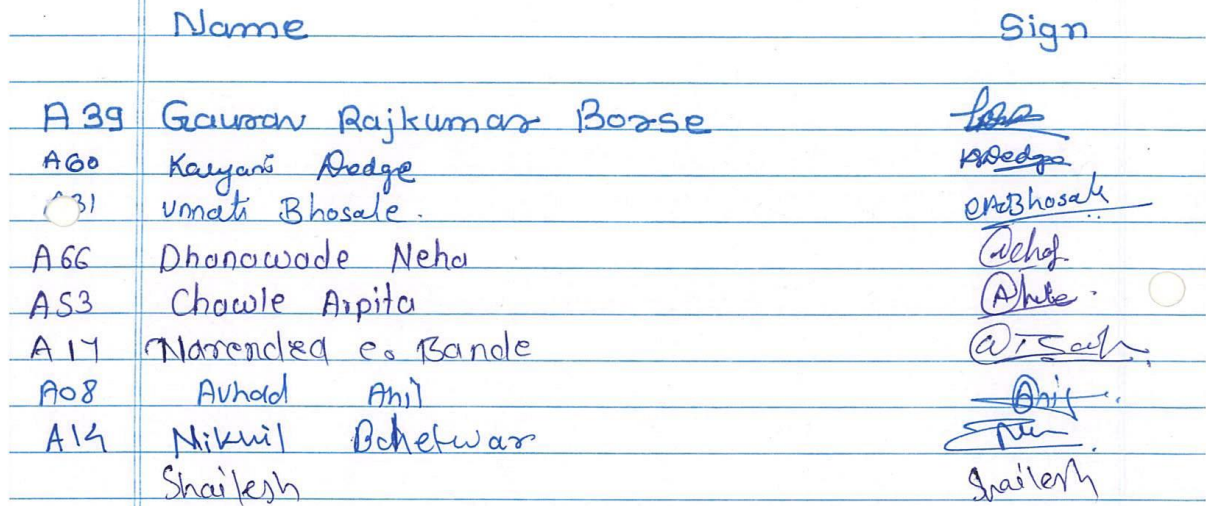 Name Sign
A 39 Gaurav Rajkumar Borse
A60 Kalyani Dodge KDedge
A31 Unnati Bhosale. Bhosale
A 66 Dhanawade Neha
A53 Chowle Arpita
A 17 Narendra Bande
A08 Avhad Anil Anil
A14 Nikhil Bchetwar
Shailesh Shailesh